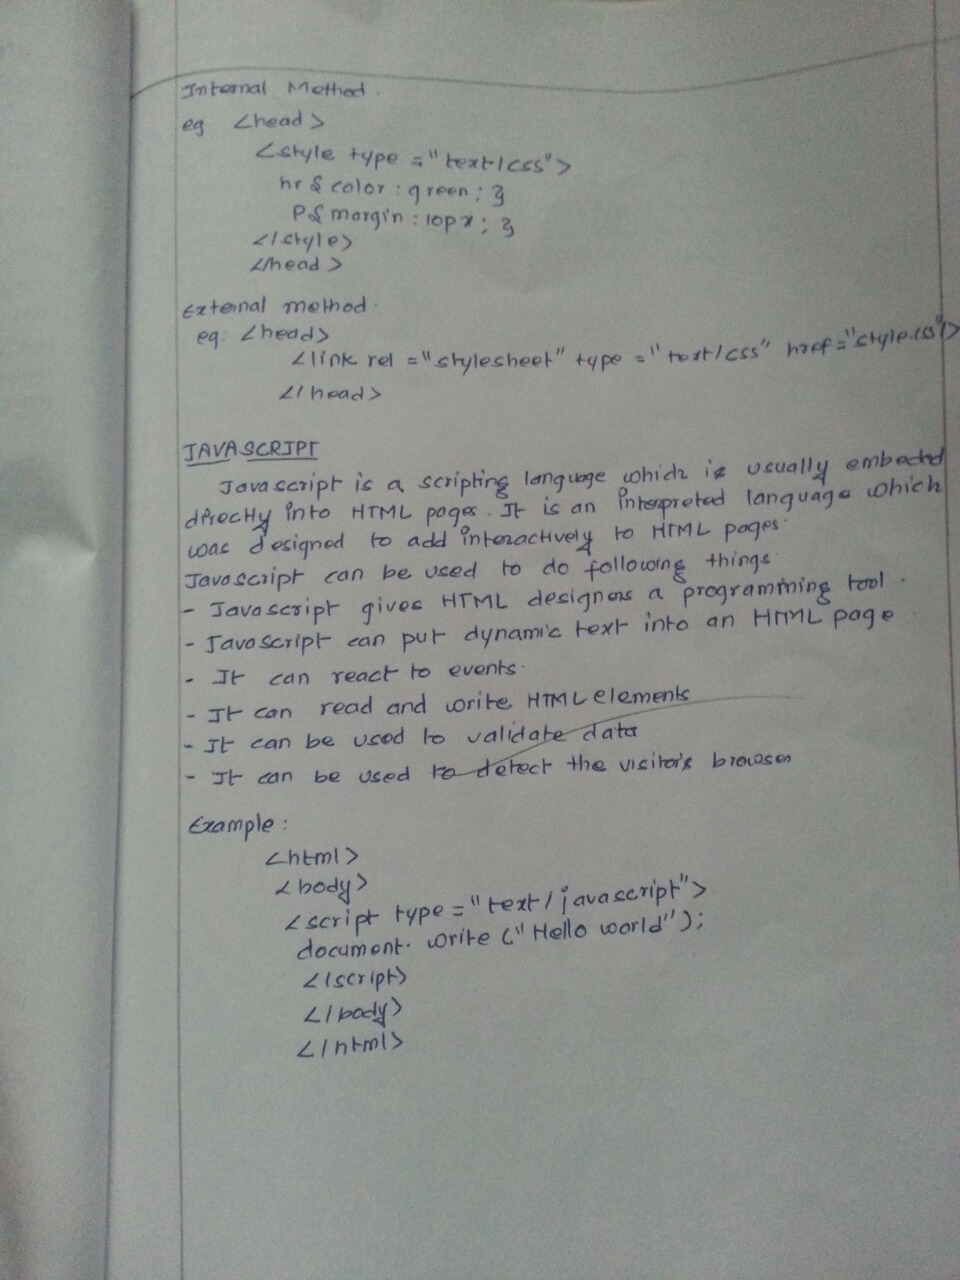 Internal Method.
eg <head>
<style type = "text/css">
hr { color : green ; }
P{ margin : 10px ; }
</style>
</head>
External method.
eg: <head>
<link rel = "stylesheet" type = "text/css" href = "style.css"/>
</head>
JAVASCRIPT
Javascript is a scripting language which is usually embeded
directly into HTML pages. It is an interpreted language which
was designed to add interactively to HTML pages.
Javascript can be used to do following things
- Javascript gives HTML designers a programming tool.
- Javascript can put dynamic text into an HTML page
- It can react to events.
- It can read and write HTML elements
- It can be used to validate data
- It can be used to detect the visitor's browser
Example :
<html>
<body>
<script type = "text/javascript">
document. write ("Hello world");
</script>
</body>
</html>